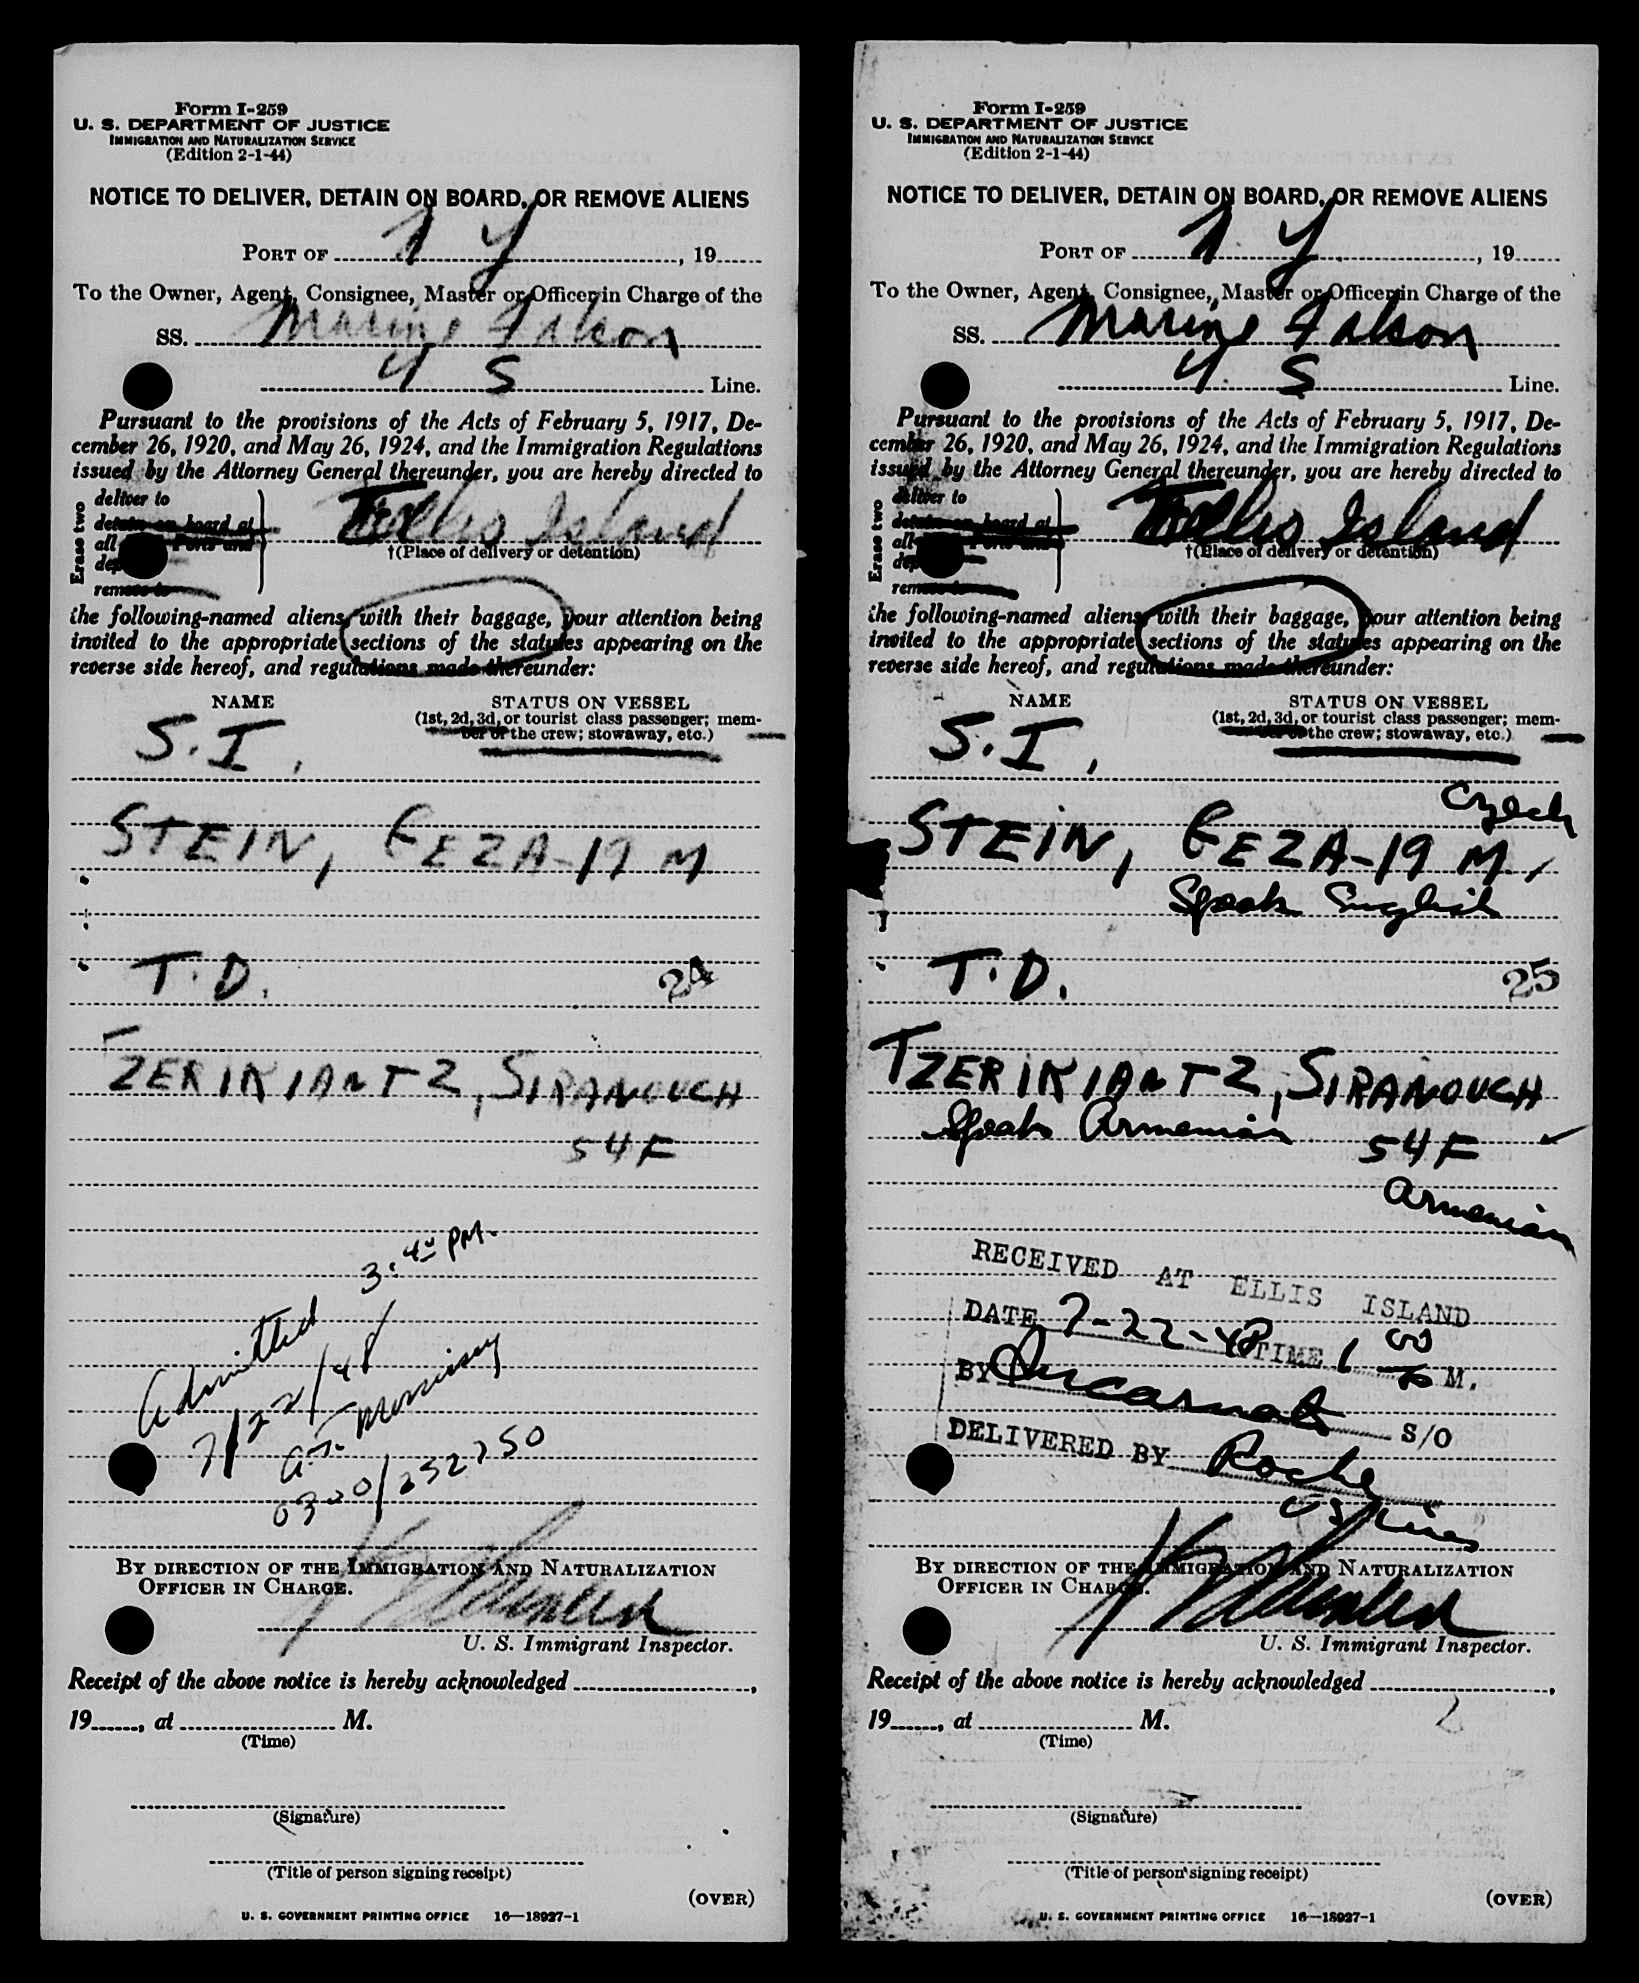 Form I-259
U. S. DEPARTMENT OF JUSTICE
IMMIGRATION AND NATURALIZATION SERVICE
(Edition 2-1-44)
NOTICE TO DELIVER, DETAIN ON BOARD, OR REMOVE ALIENS
PORT OF N Y , 19
To the Owner, Agent, Consignee, Master or Officer in Charge of the
SS. Marine Falcon
U S Line.
Pursuant to the provisions of the Acts of February 5, 1917, De-
cember 26, 1920, and May 26, 1924, and the Immigration Regulations
issued by the Attorney General thereunder, you are hereby directed to
Erase two
deliver to
detain on board at
all Ports and
remove to
Ellis Island
†(Place of delivery or detention)
the following-named aliens, with their baggage, your attention being
invited to the appropriate sections of the statutes appearing on the
reverse side hereof, and regulations made thereunder:
NAME STATUS ON VESSEL
(1st, 2d, 3d, or tourist class passenger; mem-
ber of the crew; stowaway, etc.)
S.I.
STEIN, GEZA-19 M
T.D. 24
TZERIKIANTZ, SIRANOUCH
54 F
3:40 PM.
Admitted
7/22/48
A.T. Morrissey
0300/252750
BY DIRECTION OF THE IMMIGRATION AND NATURALIZATION
OFFICER IN CHARGE.
U. S. Immigrant Inspector.
Receipt of the above notice is hereby acknowledged ,
19 , at M.
(Time)
(Signature)
(Title of person signing receipt)
(OVER)
U. S. GOVERNMENT PRINTING OFFICE 16—18927-1
Form I-259
U. S. DEPARTMENT OF JUSTICE
IMMIGRATION AND NATURALIZATION SERVICE
(Edition 2-1-44)
NOTICE TO DELIVER, DETAIN ON BOARD, OR REMOVE ALIENS
PORT OF N. Y , 19
To the Owner, Agent, Consignee, Master or Officer in Charge of the
SS. Marine Falcon
U. S Line.
Pursuant to the provisions of the Acts of February 5, 1917, De-
cember 26, 1920, and May 26, 1924, and the Immigration Regulations
issued by the Attorney General thereunder, you are hereby directed to
Erase two
deliver to
detain on board at
all Ports and
remove to
Ellis Island
†(Place of delivery or detention)
the following-named aliens, with their baggage, your attention being
invited to the appropriate sections of the statutes appearing on the
reverse side hereof, and regulations made thereunder:
NAME STATUS ON VESSEL
(1st, 2d, 3d, or tourist class passenger; mem-
ber of the crew; stowaway, etc.)
S.I.
Czech
STEIN, GEZA-19 M.
Speak English
T.D. 25
TZERIKIANTZ, SIRANOUCH
Speak Armenian 54 F
Armenian
RECEIVED AT ELLIS ISLAND
DATE 7-22-48 TIME 1 00 M.
BY S/O
DELIVERED BY Roche
US Lines
BY DIRECTION OF THE IMMIGRATION AND NATURALIZATION
OFFICER IN CHARGE.
U. S. Immigrant Inspector.
Receipt of the above notice is hereby acknowledged ,
19 , at M.
(Time)
(Signature)
(Title of person signing receipt)
(OVER)
U. S. GOVERNMENT PRINTING OFFICE 16—18927-1